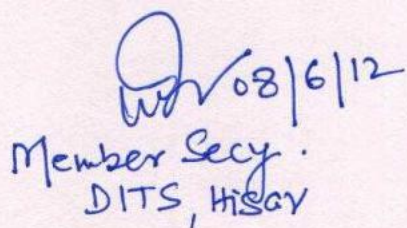 08/6/12
Member Secy.
DITS, Hisar